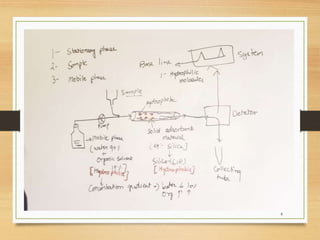 1- Stationary phase
2- Sample
3- Mobile phase
Base line
System
1- Hydrophilic
molecules
Sample
Hydrophobic
Pump
Detector
Mobile phase
(water 90)
+
Organic Solvent
[Hydrophilic]
Solid adsorbent
material
(eg: Silica]
Silica (C18)
[Hydrophobic]
Collecting
tube
Concentration gradient → water ↓ low
Org ↑ ↑